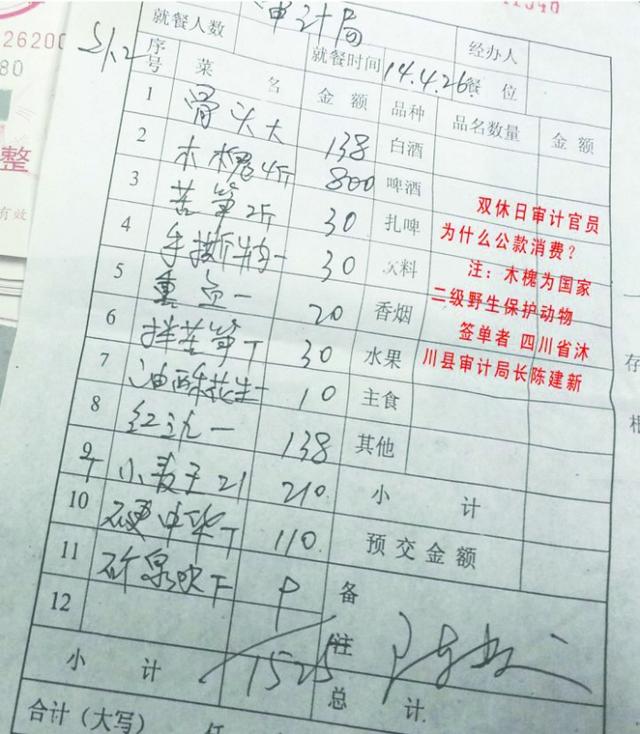 26200
80
整
有效
11340
S/12
就餐人数 审计局 经办人
序号 菜名 金额 就餐时间 14.4.26 餐位
品种 品名数量 金额
1 骨头大 138 白酒
2 木槐4斤 800 啤酒
3 苦笋2斤 30 扎啤
4 手撕 30 饮料
5 一 20 香烟
6 拌苦笋 30 水果
7 油酥花生一 10 主食
8 红 一 138 其他
9 小麦王21 210 小计
10 硬中华 110 预交金额
11 矿泉水 备注
12
小计 1525 总计
合计（大写） 仟
双休日审计官员
为什么公款消费？
注：木槐为国家
二级野生保护动物
签单者 四川省沐
川县审计局长陈建新
存
根